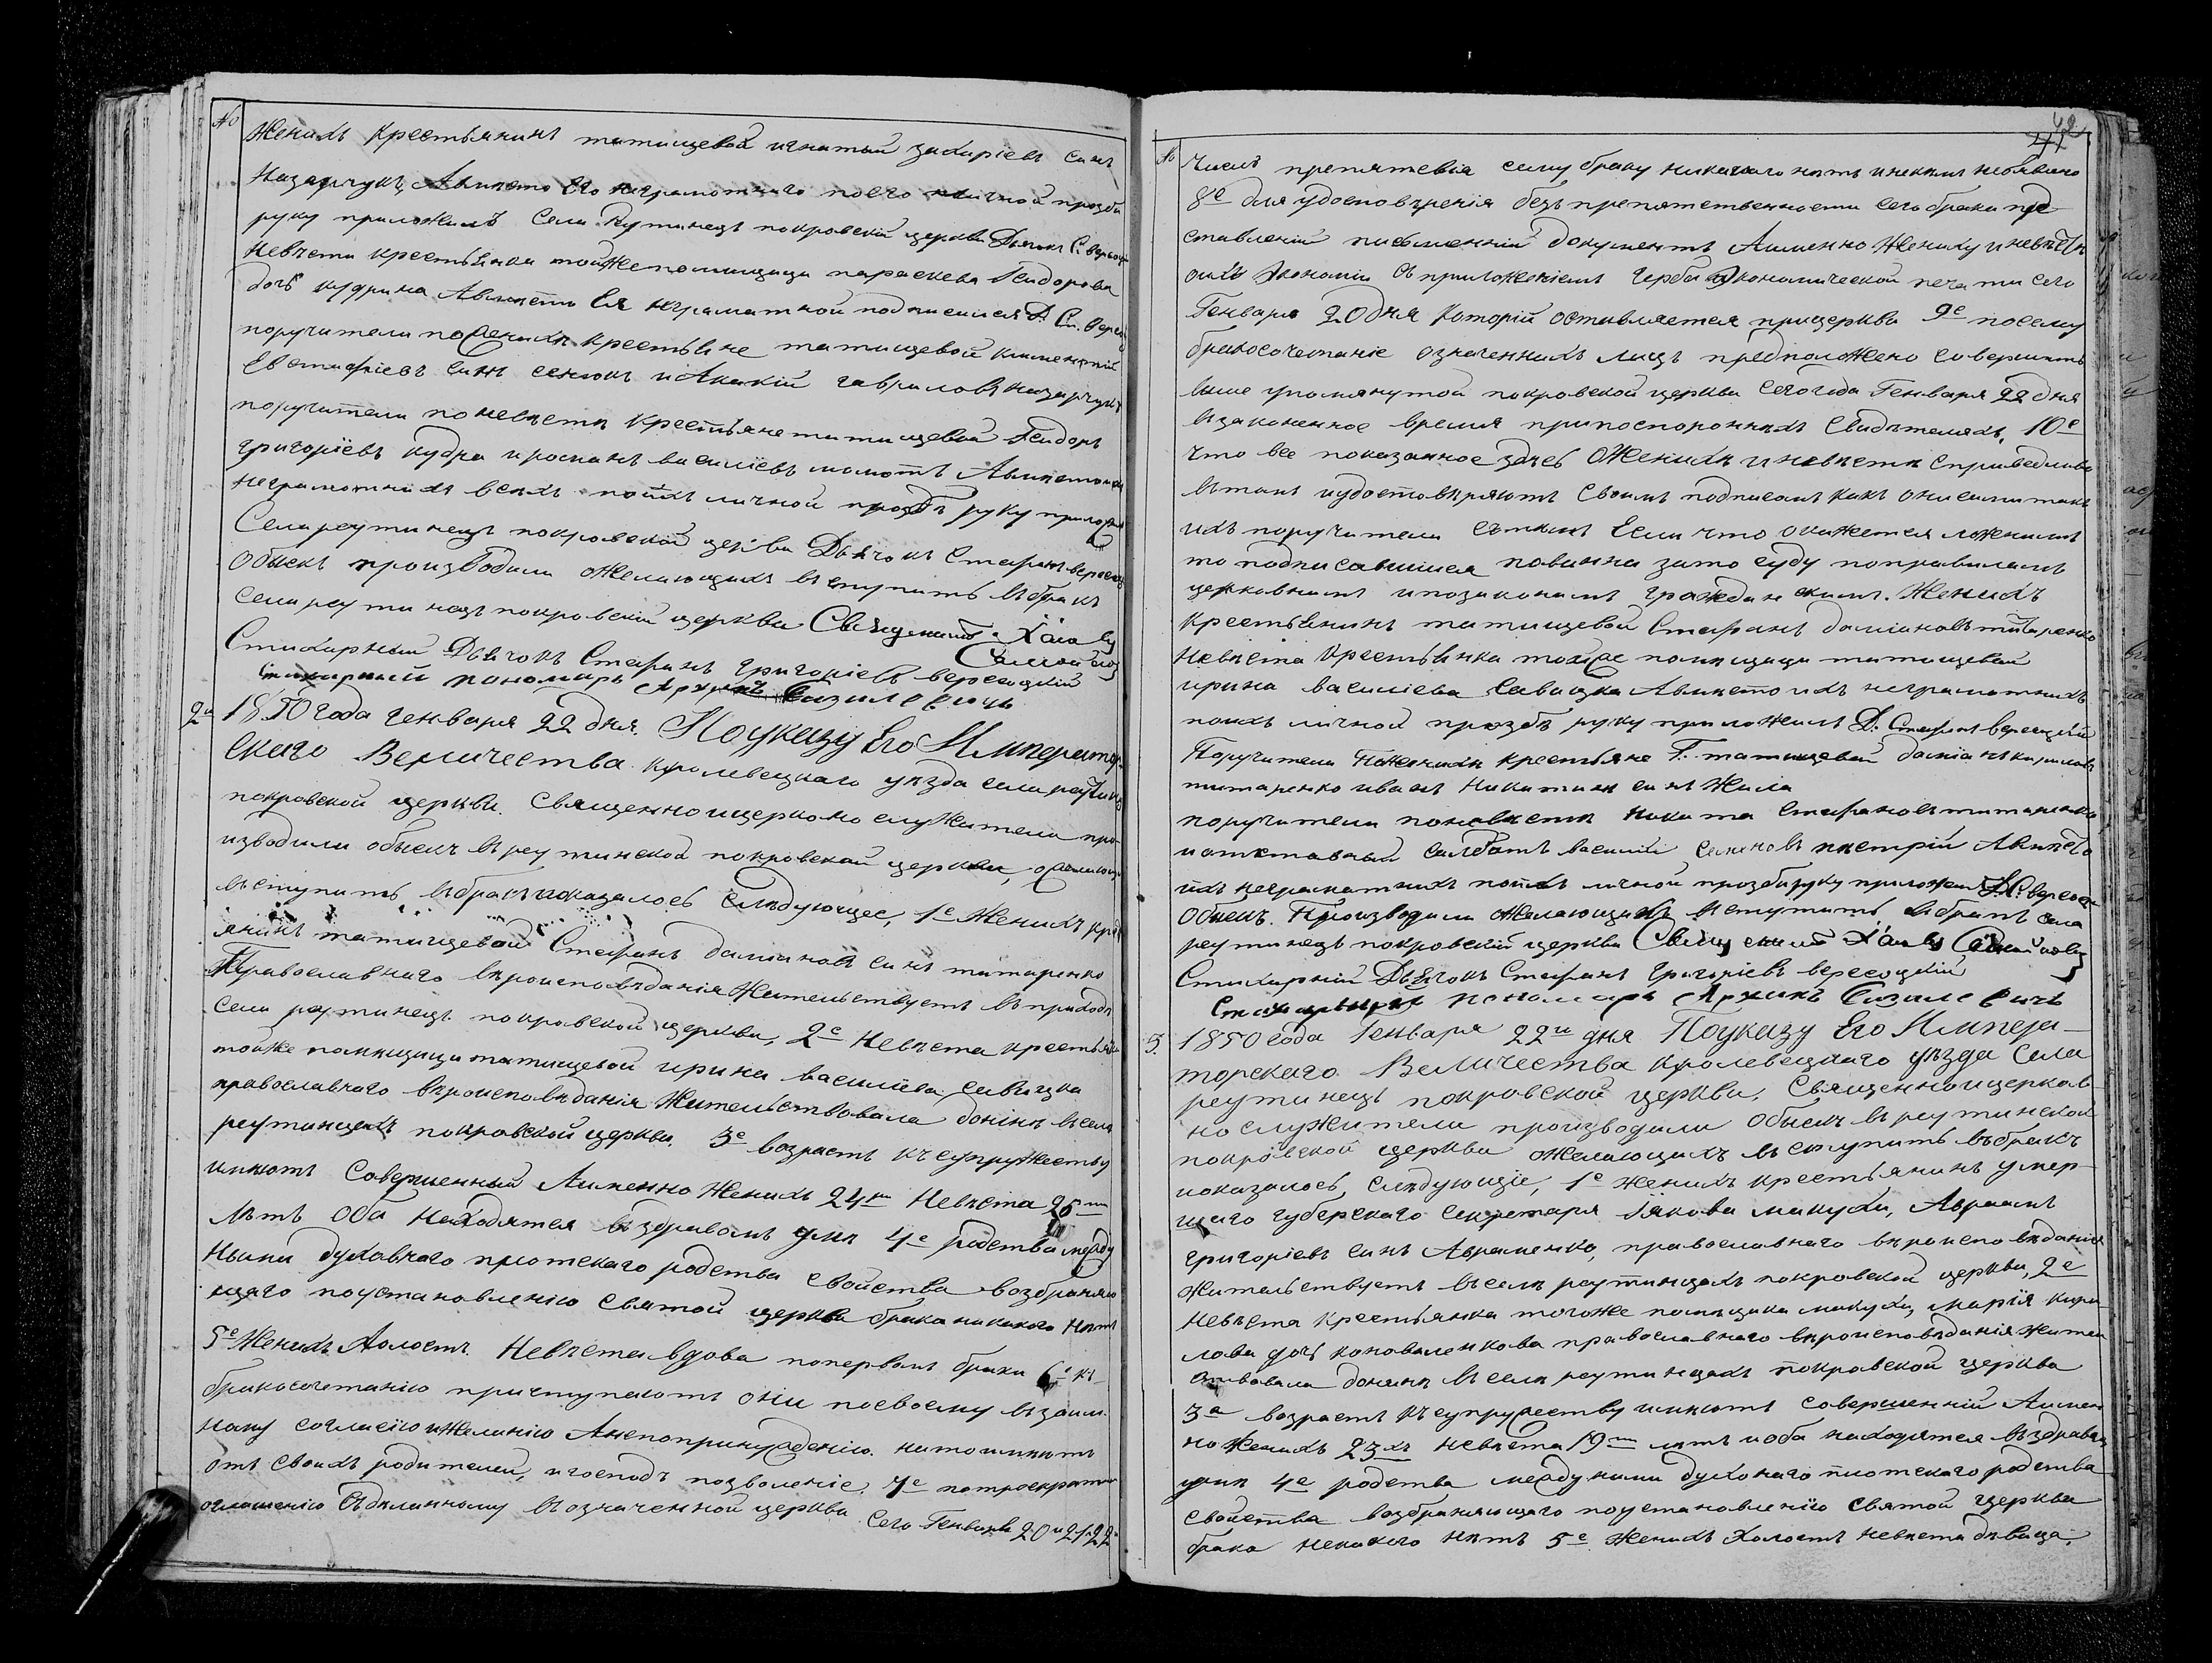 №
Женихъ крестьянинъ татищевой игнатий захаріевъ сынъ
Назарчукъ, Авместо его неграмотнаго поего личной прозби
руку приложилъ Села Реутинецъ покровской церкви Дьячокъ С. верещ
Невѣста крестьянка тойже помещици параскева Сидорова
дочь кудрина Авмѣсто Ея неграматной подписался Д. Ст. Верещ
поручители поженихѣ крестьяне татищевой климентій
Евстафіевъ сынъ сенюкъ и Акакій гавриловъ назарчукъ
поручители по невѣстѣ крестьяне татищевой Сидоръ
григоріевъ кудра и романъ василіевъ мамотъ Авместо ихъ
неграмотнихъ всехъ поихъ личной прозбѣ руку приложилъ
Села реутинецъ покровской церкви Дьячокъ Стефанъ верещ
Обыскъ производили желающихъ въступить въбракъ
села реутинецъ покровской церкви Священникъ
Стихарный Дьячокъ Стефанъ григоріевъ верещацкий
Стихарный пономарь Архипъ Базилевичъ
2й 1850 года генваря 22 дня. Поуказу Его Император-
скаго Величества кролевецкаго уѣзда села реутинецъ
покровской церкви. Священноицерковнослужители про-
изводили обыскъ въ реутинской покровской церкви, о желающихъ
въступить въбракъ иоказалось слѣдующее, 1е Женихъ крест
янинъ татищевой Стефанъ даміановъ сынъ титаренко
Православнаго вѣроисповѣданія Жительствуетъ въ приходѣ
села реутинецъ покровской церкви, 2е Невѣста крестьянка
тойже помѣщици татищевой ирина василіева савицка
православнаго вѣроисповѣданія Жительствовала донинѣ въселѣ
реутинцахъ покровской церкви, 3е возрастъ къ супружеству
имѣютъ Совершенный Аименно Женихъ 24хъ Невѣста 26ти
Лѣтъ Оба Находятся въздравомъ умѣ 4е родства между
Ньими духовнаго плотскаго родства Свойства возбраняю
щаго поустановленію Святой церкви брака никакого нѣтъ
5е Женихъ Холостъ. Невѣста вдова поперьвомъ браки 6е къ
бракосочетанію приступаютъ они посвоему взаим-
ному согласію иЖеланію Анепопринужденію. натоимѣютъ
отъ своихъ родителей, игосподъ позволеніе 7е потроекратн
оглашенію Сдѣланному въозначенной церкви Сего Генваря 20и 21. 22

42
41
№
Числъ препятствія сему браку никакого нѣтъ инекимъ необявлено
8е для удостовѣренія безъпрепятственности Сего брака пред-
ставленій письменній документъ Аименно Жениху иневѣстѣ
оихъ экономіи съприложеніемъ герба экономической печати сего
Генваря 20 дня Которій оставляется прицеркви 9е посему
бракосочетаніе означеннихъ лицъ предположено совершить
выше упомянутой покровской церкви Сегогода Генваря 22 дня
взаконенное время припостороннихъ Свидѣтеляхъ, 10е
что все показанное здесь ОЖенихѣ иневестѣ справедливо
вътакъ иудостовѣряютъ Своимъ подписомъ Какъ онисами такъ
ихъ поручители Сътимъ Если что окажется ложнимъ
то подписавшися повинни зато суду поправиламъ
церковнимъ ипозаконамъ гражданскимъ. Женихъ
Крестьянинъ татищевой Стефанъ даміановъ титаренко
Невѣста Крестьянка тойже помѣщици татищевой
ирина василіева Савицка Авмѣсто ихъ неграмотнихъ
поихъ личной прозбѣ руку приложилъ Д. Стефанъ верещацкій
Поручители Поженихѣ крестьяне Г. татищевой даміанъ кириловъ
титаренко иванъ Никитинъ синъ Жила
поручители поневѣстѣ никита Стефановъ титаренко
иотставный салдатъ василій Семеновъ пистрій Авмѣсто
ихъ неграматнихъ поихъ личной прозби руку приложилъ Д. С. верещ
Обыскъ. Производили желающихъ Вступить въбракъ села
реутинецъ покровской церкви Священникъ
Стихарній Дьячокъ Стефанъ Григоріевъ верещацкій
Стихарный пономарь Архипъ Базилевичъ
3. 1850 года Генваря 22и дня Поуказу Его Импера-
торскаго Величества кролевецкаго уѣзда Села
реутинецъ покровской церкви, Священноицерков-
нослужители производили Обыскъ въ реутинской
покровской церкви желающихъ въступить въбракъ
иоказалось, слѣдующіе, 1е женихъ крестьянинъ умер-
шаго губерскаго Секретаря іакова макухи, Авраамъ
григоріевъ синъ Авраменко, православнаго вѣроисповѣданія
жительствуетъ въселѣ реутинцахъ покровской церкви, 2е
Невѣста крестьянка тогоже помѣщика макухи, марія кири-
лова дочь коноваленкова православнаго вѣроисповѣданія жител
ствовала донинѣ Въселѣ реутинцахъ покровской церкви
3е возрастъ късупружеству имѣютъ совершенній Аимен
но Женихъ 23хъ Невѣста 19ти лѣтъ иоба находятся въздравом
умѣ 4е родства междуними духовнаго плотскаго родства
Свойства возбраняющаго поустановленію Святой церкви
брака некакого нѣтъ 5е Женихъ Холостъ невѣста дѣвица,